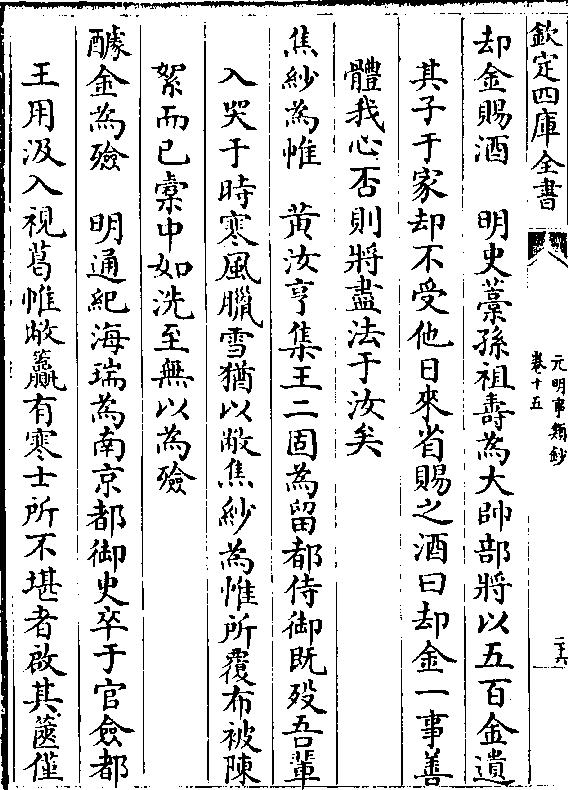 欽定四庫全書
元明事類鈔
卷十五
二十六
却金賜酒　明史藁孫祖壽為大帥部將以五百金遺
其子于家却不受他日來省賜之酒曰却金一事善
體我心否則將盡法于汝矣
焦紗為帷　黃汝亨集王二固為留都侍御既殁吾輩
入哭于時寒風臘雪猶以敝焦紗為帷所覆布被陳
絮而已橐中如洗至無以為殮
醵金為殮　明通紀海瑞為南京都御史卒于官僉都
王用汲入視葛帷敝籯有寒士所不堪者啟其篋僅